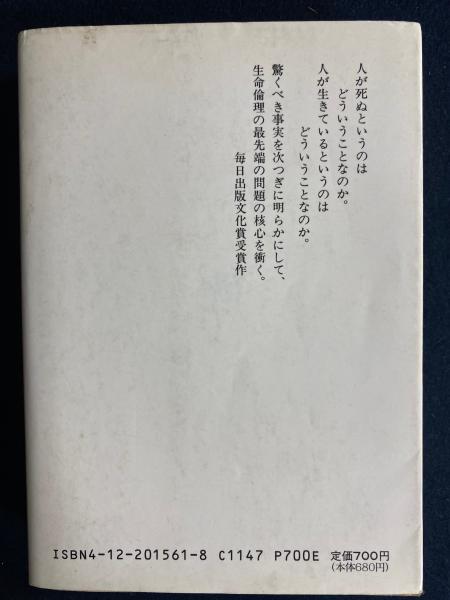 人が死ぬというのは
どういうことなのか。
人が生きているというのは
どういうことなのか。
驚くべき事実を次つぎに明らかにして、
生命倫理の最先端の問題の核心を衝く。
毎日出版文化賞受賞作
ISBN4-12-201561-8 C1147 P700E 定価700円
(本体680円)